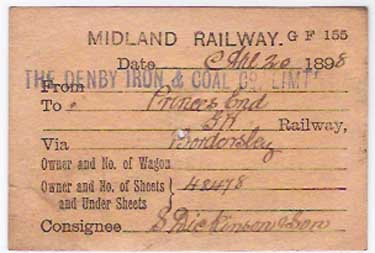 MIDLAND RAILWAY. G F 155
Date 20 1898
THE DENBY IRON & COAL CO. LIMTD
From
To Princes End
G W Railway,
Via Bordersley
Owner and No. of Wagon
Owner and No. of Sheets and Under Sheets } 48478
Consignee S Dickinson & Son